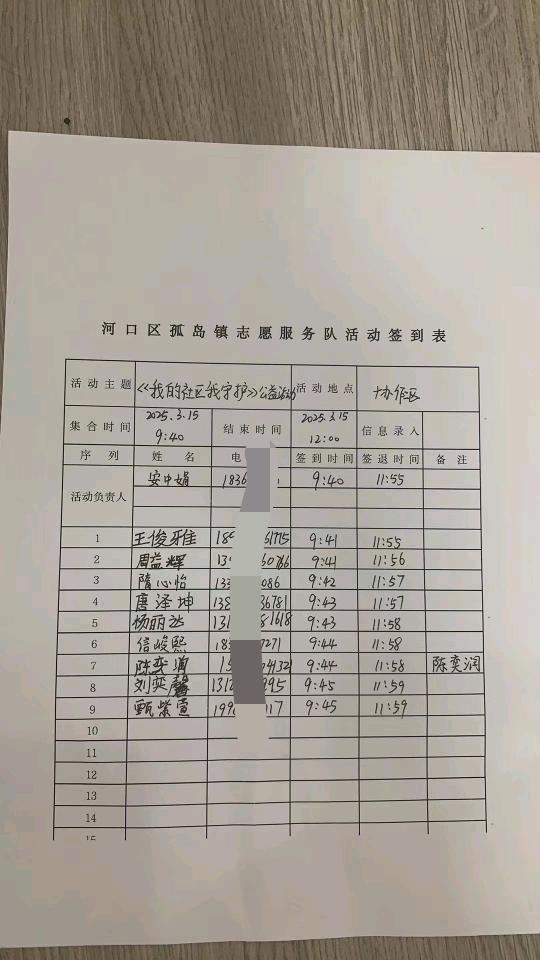 河口区孤岛镇志愿服务队活动签到表
活动主题 《我的社区我守护》公益活动 活动地点 协作区
集合时间 2025.3.15 9:40 结束时间 2025.3.15 12:00 信息录入
序列 姓名 电 签到时间 签退时间 备注
活动负责人 安中娟 1836 9:40 11:55
1 王俊雅 18 61775 9:41 11:55
2 周益辉 13 60766 9:41 11:56
3 隋心怡 133 086 9:42 11:57
4 唐泽坤 138 36781 9:43 11:57
5 杨丽达 131 81618 9:43 11:58
6 信峻熙 183 7271 9:44 11:58
7 陈奕润 15 74132 9:44 11:58 陈奕润
8 刘奕馨 1312 295 9:45 11:59
9 甄紫萱 199 17 9:45 11:59
10
11
12
13
14
15